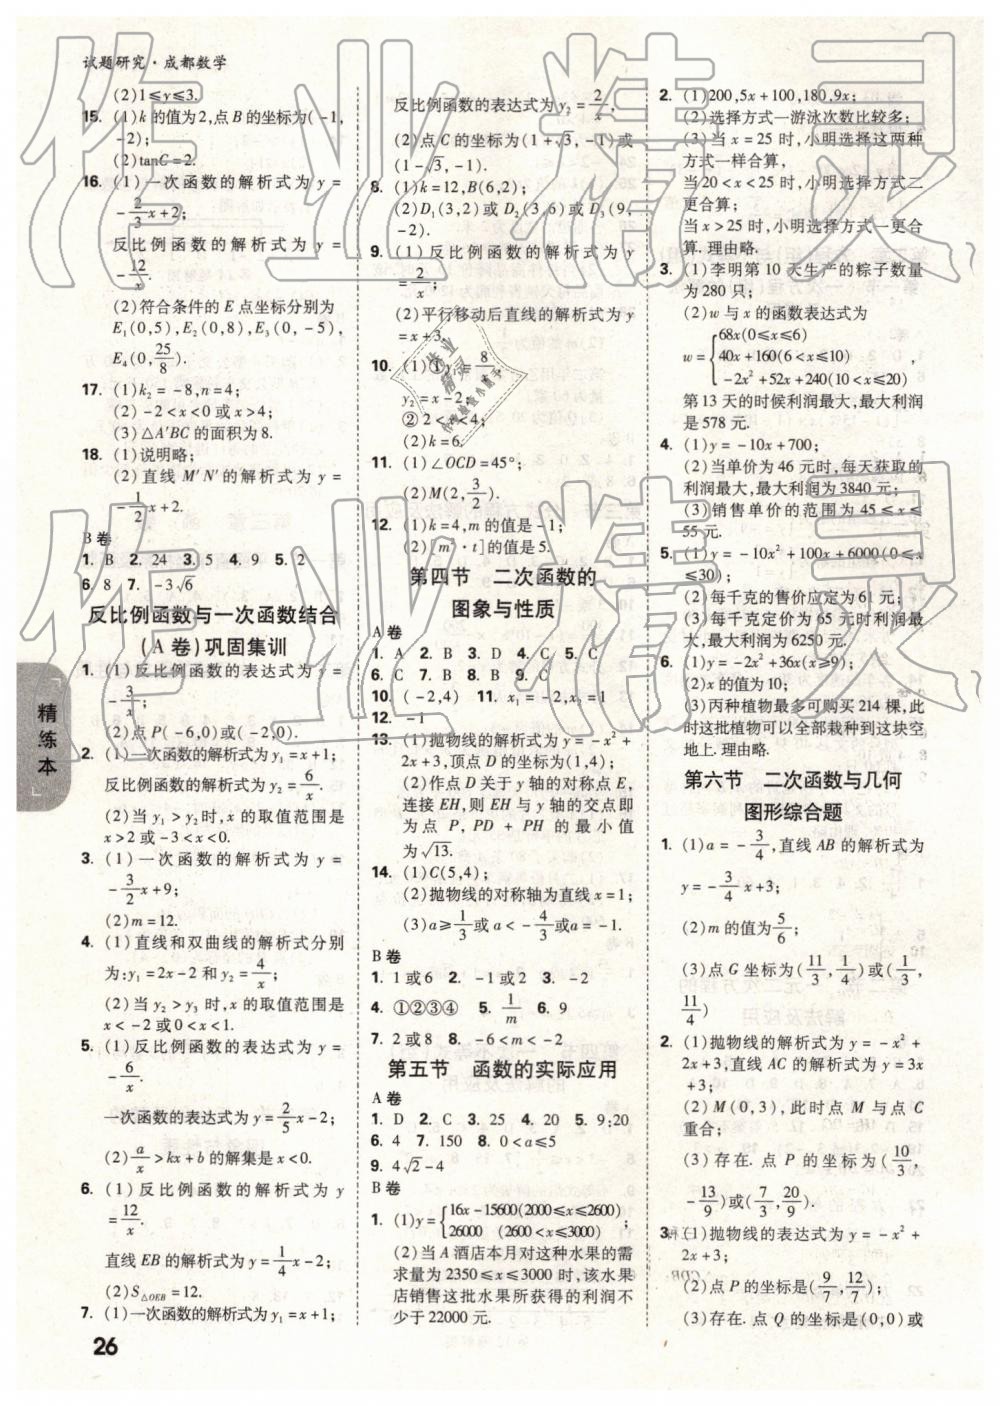 试题研究·成都数学
(2)1≤y≤3.
15. (1)k的值为2,点B的坐标为(-1,
-2);
(2)tanC=2.
16. (1)一次函数的解析式为y=
-2/3x+2;
反比例函数的解析式为y=
-12/x.
(2)符合条件的E点坐标分别为
E₁(0,5),E₂(0,8),E₃(0,-5),
E₄(0,25/8).
17. (1)k₂=-8,n=4;
(2)-2<x<0或x>4;
(3)△A'BC的面积为8.
18. (1)说明略;
(2)直线M'N'的解析式为y=
-1/2x+2.
B卷
1. B 2. 24 3. 5 4. 9 5. 2
6. 8 7. -3√6
反比例函数与一次函数结合
(A卷)巩固集训
1. (1)反比例函数的表达式为y=
-3/x;
(2)点P(-6,0)或(-2,0).
2. (1)一次函数的解析式为y₁=x+1;
反比例函数的解析式为y₂=6/x.
(2)当y₁>y₂时,x的取值范围是
x>2或-3<x<0.
3. (1)一次函数的解析式为y=
-3/2x+9;
(2)m=12.
4. (1)直线和双曲线的解析式分别
为:y₁=2x-2和y₂=4/x;
(2)当y₂>y₁时,x的取值范围是
x<-2或0<x<1.
5. (1)反比例函数的表达式为y=
-6/x.
一次函数的表达式为y=2/5x-2;
(2)a/x>kx+b的解集是x<0.
6. (1)反比例函数的解析式为y=
12/x.
直线EB的解析式为y=1/4x-2;
(2)S△OEB=12.
7. (1)一次函数的解析式为y₁=x+1;
26
精练本
反比例函数的表达式为y₂=2/x,
(2)点C的坐标为(1+√3,-1)或
(1-√3,-1).
8. (1)k=12,B(6,2);
(2)D₁(3,2)或D₂(3,6)或D₃(9,
-2).
9. (1)反比例函数的解析式为y
=2/x;
(2)平行移动后直线的解析式为y
=x+3.
10. (1)①y₁=8/x,
y₂=x-2;
②2<x<4;
(2)k=6.
11. (1)∠OCD=45°;
(2)M(2,3/2).
12. (1)k=4,m的值是-1;
(2)[m²·t]的值是5.
第四节 二次函数的
图象与性质
A卷
1. A 2. B 3. D 4. C 5. C
6. C 7. B 8. B 9. C
10. (-2,4) 11. x₁=-2,x₂=1
12. -1
13. (1)抛物线的解析式为y=-x²+
2x+3,顶点D的坐标为(1,4);
(2)作点D关于y轴的对称点E,
连接EH,则EH与y轴的交点即
为点P,PD+PH的最小值
为√13.
14. (1)C(5,4);
(2)抛物线的对称轴为直线x=1;
(3)a≥1/3或a<-4/3或a=-1.
B卷
1. 1或6 2. -1或2 3. -2
4. ①②③④ 5. 1/m 6. 9
7. 2或8 8. -6<m<-2
第五节 函数的实际应用
A卷
1. D 2. C 3. 25 4. 20 5. 9:20
6. 4 7. 150 8. 0<a≤5
9. 4√2-4
B卷
1. (1)y={16x-15600(2000≤x≤2600)
26000 (2600<x≤3000);
(2)当A酒店本月对这种水果的需
求量为2350≤x≤3000时,该水果
店销售这批水果所获得的利润不
少于22000元.
2. (1)200,5x+100,180,9x;
(2)选择方式一游泳次数比较多;
(3)当x=25时,小明选择这两种
方式一样合算,
当20<x<25时,小明选择方式二
更合算;
当x>25时,小明选择方式一更合
算.理由略.
3. (1)李明第10天生产的粽子数量
为280只;
(2)w与x的函数表达式为
w={68x(0≤x≤6)
40x+160(6<x≤10)
-2x²+52x+240(10<x≤20)
第13天的时候利润最大,最大利润
是578元.
4. (1)y=-10x+700;
(2)当单价为46元时,每天获取的
利润最大,最大利润为3840元;
(3)销售单价的范围为45≤x≤
55元.
5. (1)y=-10x²+100x+6000(0≤x
≤30);
(2)每千克的售价应定为61元;
(3)每千克定价为65元时利润最
大,最大利润为6250元.
6. (1)y=-2x²+36x(x≥9);
(2)x的值为10;
(3)丙种植物最多可购买214棵,此
时这批植物可以全部栽种到这块空
地上.理由略.
第六节 二次函数与几何
图形综合题
1. (1)a=-3/4,直线AB的解析式为
y=-3/4x+3;
(2)m的值为5/6;
(3)点G坐标为(11/3,1/4)或(1/3,
11/4)
2. (1)抛物线的解析式为y=-x²+
2x+3,直线AC的解析式为y=3x
+3;
(2)M(0,3),此时点M与点C
重合;
(3)存在.点P的坐标为(10/3,
-13/9)或(7/3,20/9).
3. (1)抛物线的表达式为y=-x²+
2x+3;
(2)点P的坐标是(9/7,12/7);
(3)存在.点Q的坐标是(0,0)或
作业精灵
作业精灵